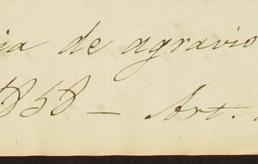 ia de agravio
1858 – Art.